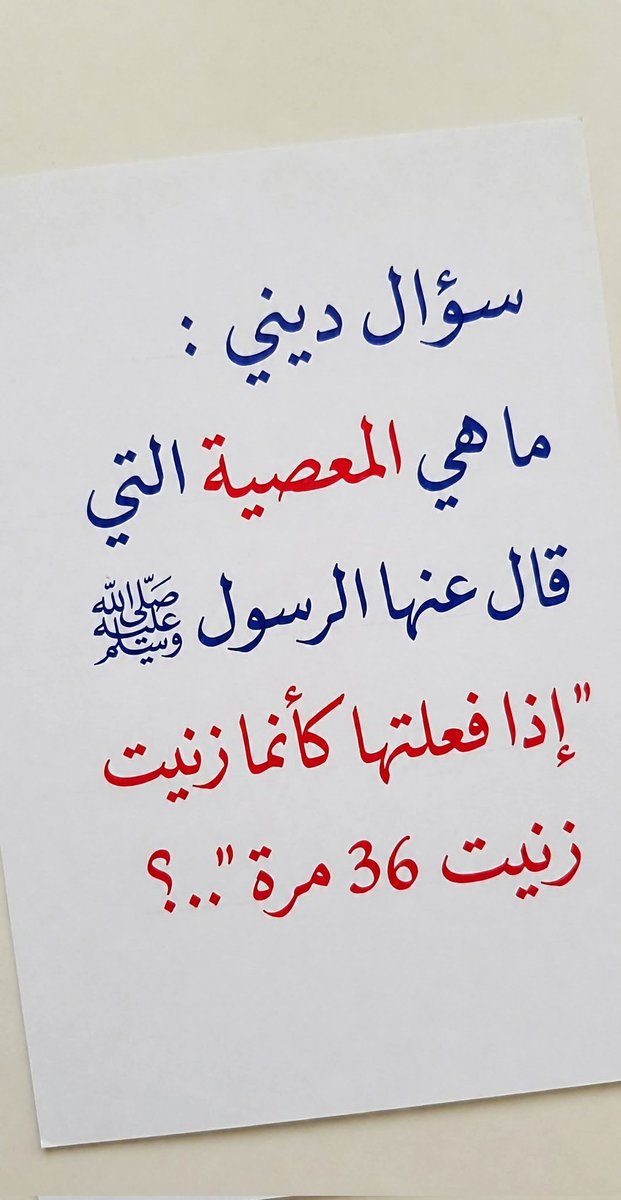 سؤال ديني :
ما هي المعصية التي
قال عنها الرسول ﷺ
"إذا فعلتها كأنما زنيت
زنيت 36 مرة"...؟